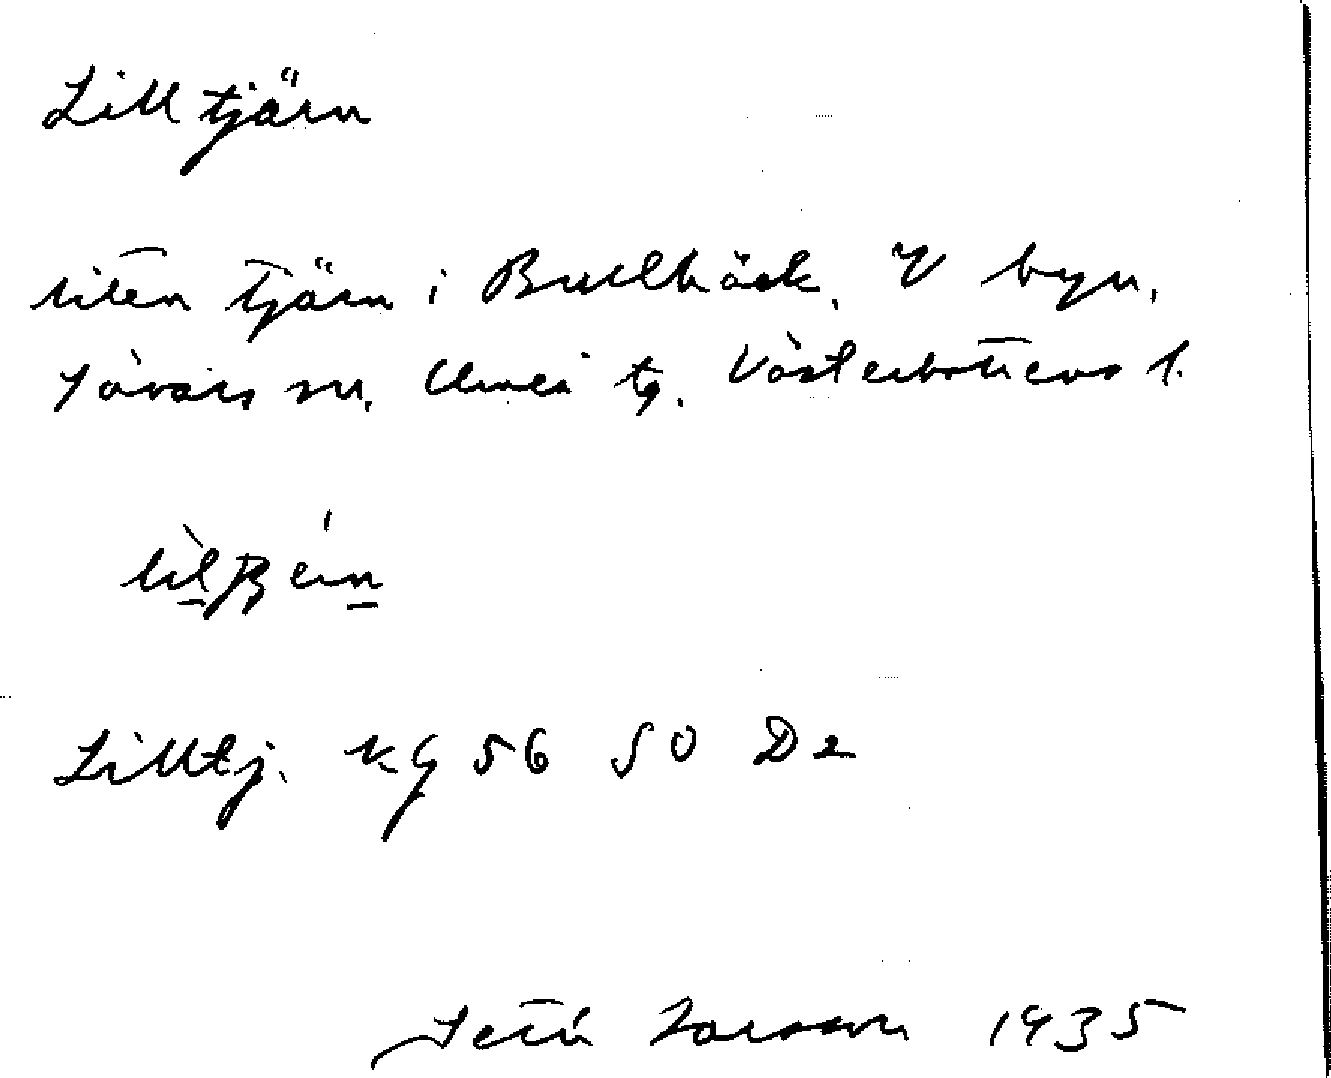 Lilltjärn
liten tjärn i Bullbäck, V byn,
Sävars sn, Umeå tg. Västerbottens l.
Lilltj. kg 56 50 D2
Larsson 1935